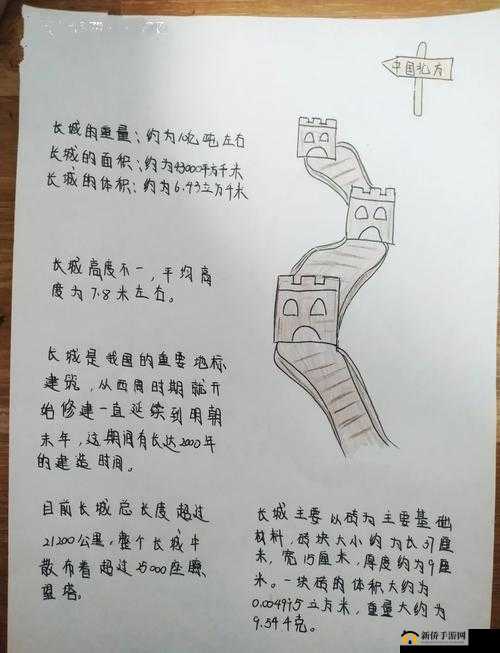 中国北方
长城的重量：约为10亿吨左右
长城的面积：约为43000平方千米
长城的体积：约为6.43立方千米
长城高度不一，平均高
度为7.8米左右。
长城是我国的重要地标
建筑，从西周时期就开
始修建一直延续到明朝
末年，这期间有长达2000年
的建造时间。
目前长城总长度超过
21200公里，整个长城中
散布着超过25000座瞭
望塔。
长城主要以砖为主要基础
材料，砖块大小约为长37厘
米，宽15厘米，厚度约为9厘
米。一块砖的体积大约为
0.004995立方米，重量大约为
9.544克。
新侨手游网